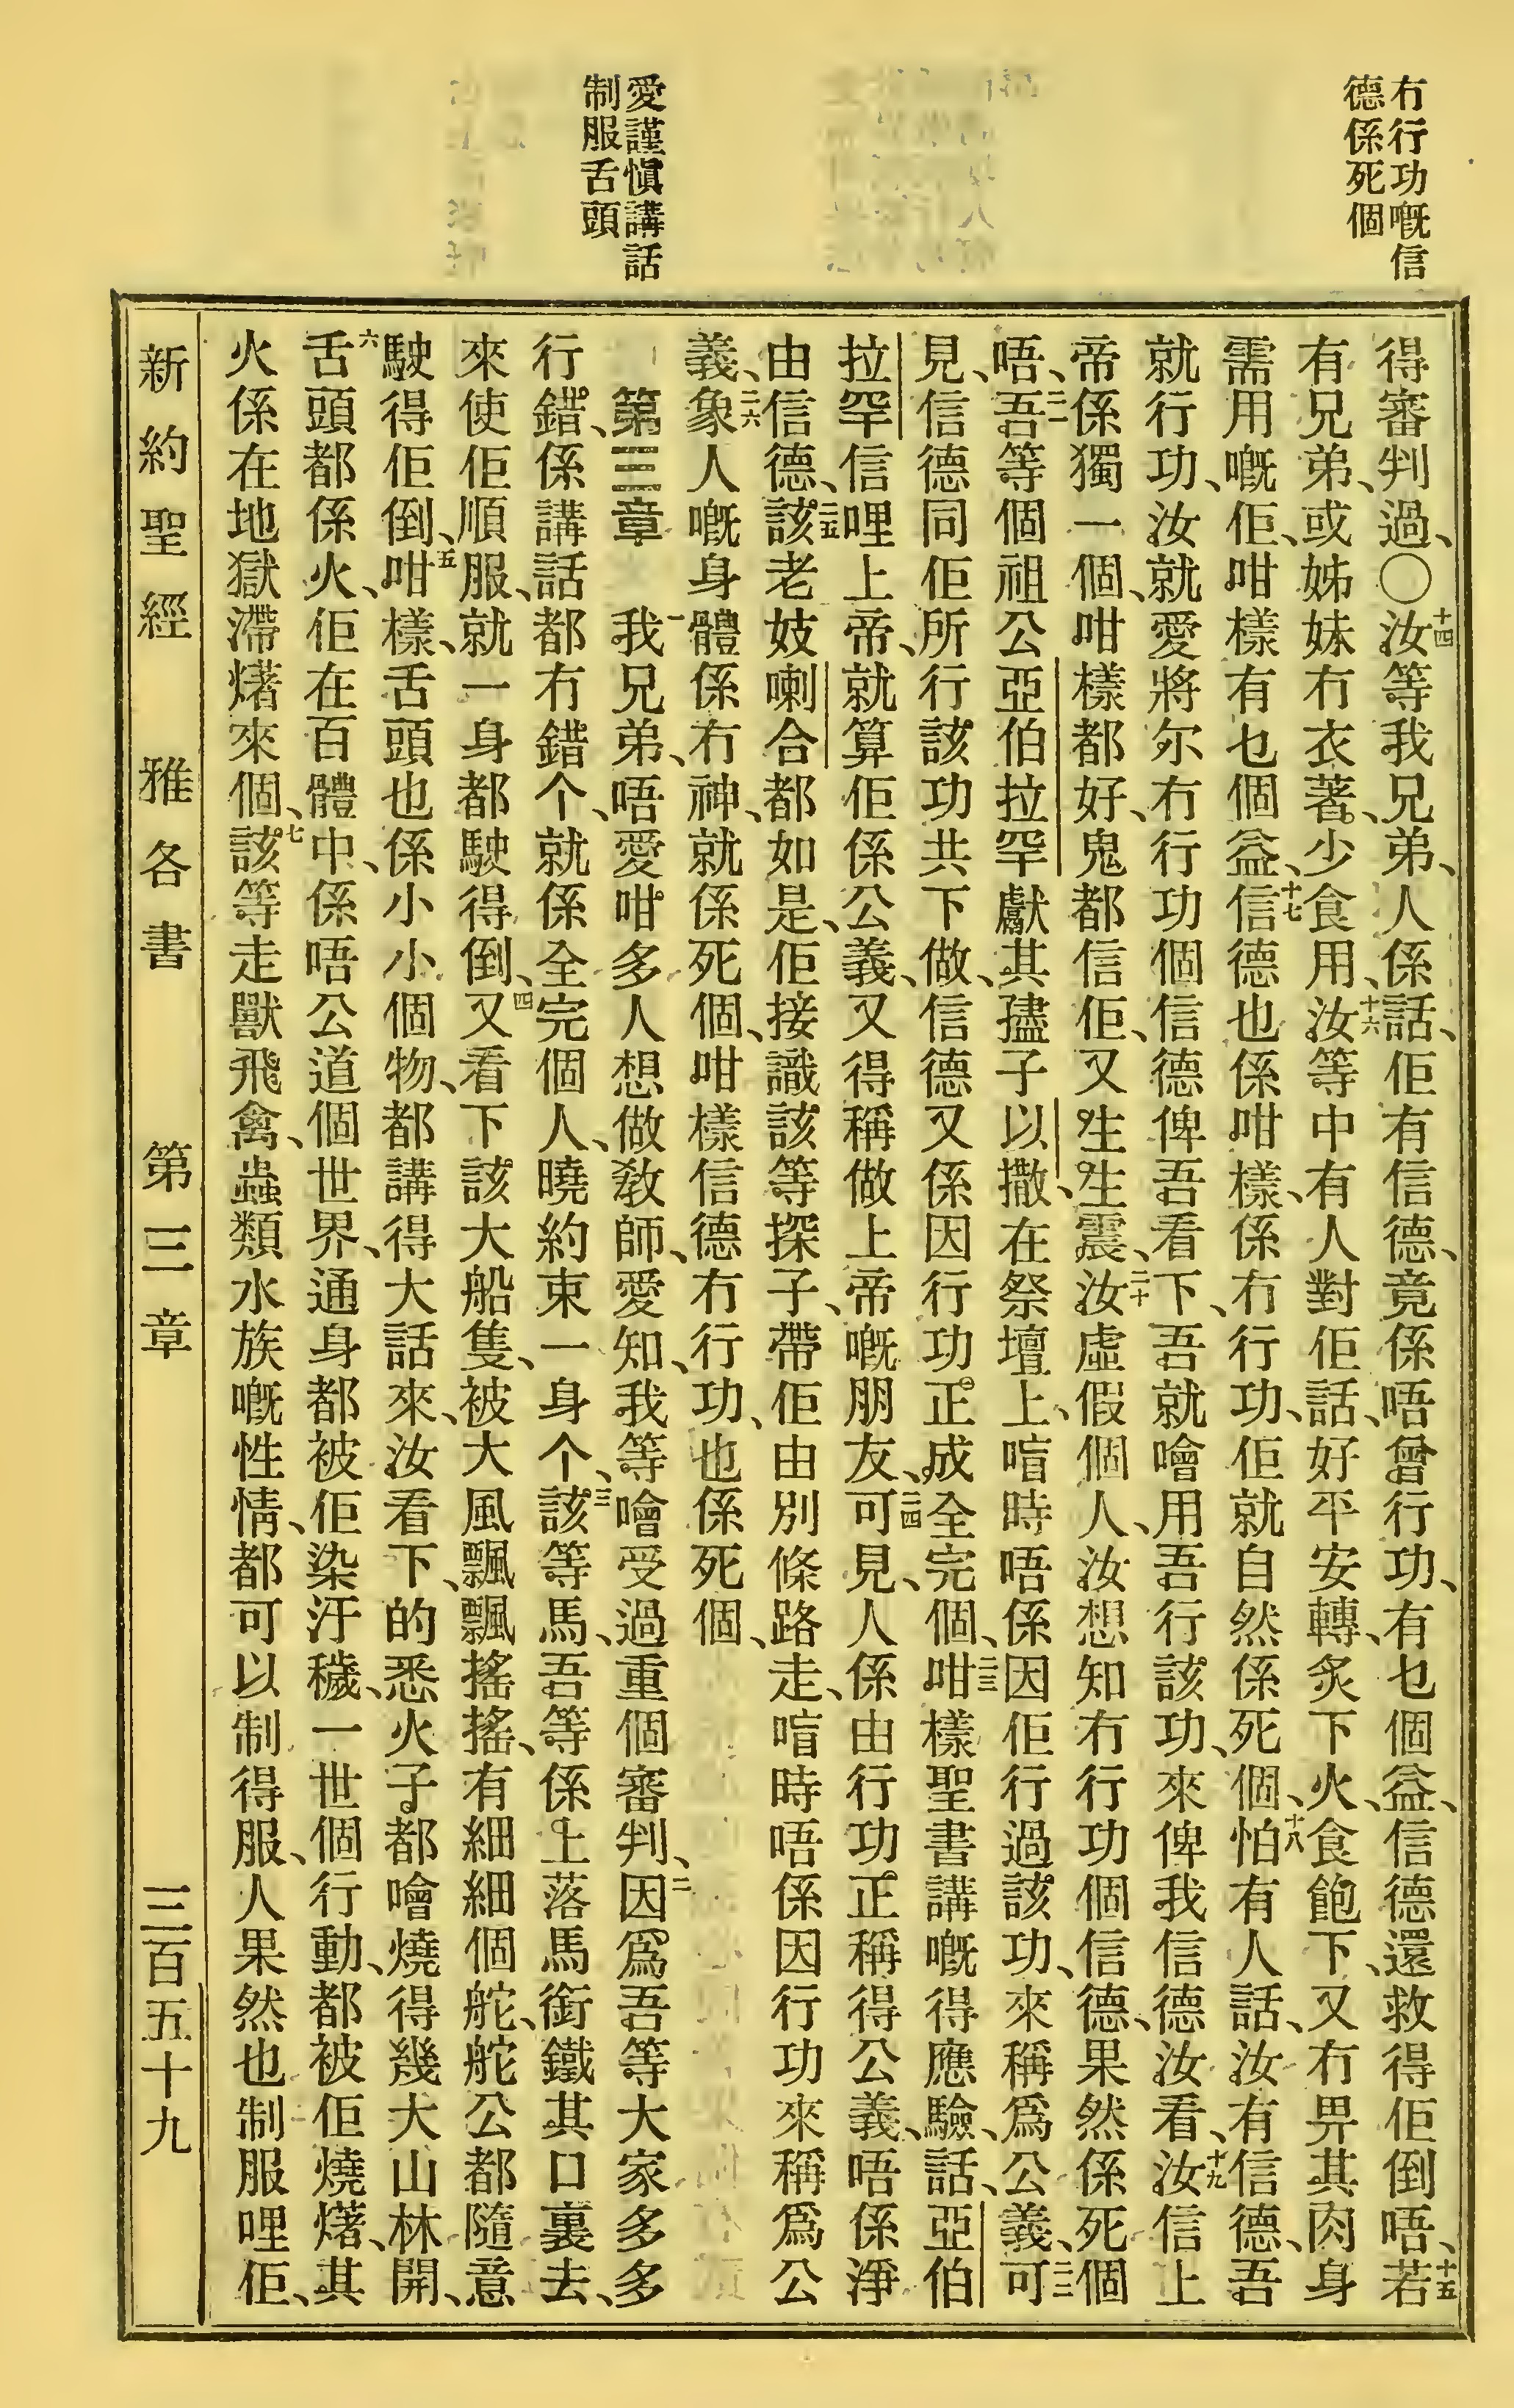 冇行功嘅信
德係死個
愛謹愼講話
制服舌頭
得審判過、〇十四汝等我兄弟、人係話、佢有信德、竟係唔曾行功、有乜個益、信德還救得佢倒唔、十五若
有兄弟、或姊妹冇衣著、少食用、十六汝等中有人對佢話、好平安轉、炙下火、食飽下、又冇畀其肉身
需用嘅佢、咁樣有乜個益、十七信德也係咁樣、係冇行功、佢就自然係死個、十八怕有人話、汝有信德、吾
就行功、汝就愛將尔冇行功個信德俾吾看下、吾就噲用吾行該功、來俾我信德汝看、十九汝信上
帝係獨一個、咁樣都好、鬼都信佢、又生生震、二十汝虛假個人、汝想知冇行功個信德、果然係死個
唔、二一吾等個祖公亞伯拉罕獻其㜽子以撒、在祭壇上、喑時唔係因佢行過該功、來稱爲公義、二二可
見、信德同佢所行該功共下做、信德又係因行功正成全完個、二三咁樣聖書講嘅得應驗、話、亞伯
拉罕信哩上帝、就算佢係公義、又得稱做上帝嘅朋友、二四可見、人係由行功正稱得公義、唔係淨
由信德、二五該老妓喇合都如是、佢接識該等探子、帶佢由別條路走、喑時唔係因行功來稱爲公
義、二六象人嘅身體係冇神、就係死個、咁樣信德冇行功、也係死個、
第三章　一我兄弟、唔愛咁多人想做敎師、愛知、我等噲受過重個審判、二因爲吾等大家多多
行錯、係講話都冇錯个、就係全完個人、曉約束一身个、三該等馬、吾等係上落馬銜鐵其口裏去、
來使佢順服、就一身都駛得倒、四又看下該大船隻、被大風飄飄搖搖、有細細個舵、舵公都隨意
駛得佢倒、五咁樣、舌頭也係小小個物、都講得大話來、汝看下、的悉火子、都噲燒得幾大山林開、
六舌頭都係火、佢在百體中、係唔公道個世界、通身都被佢染汙穢、一世個行動、都被佢燒㸑、其
火係在地獄滯㸑來個、七該等走獸飛禽、蟲類水族嘅性情、都可以制得服、人果然也制服哩佢、
新約聖經　雅各書　第三章　三百五十九